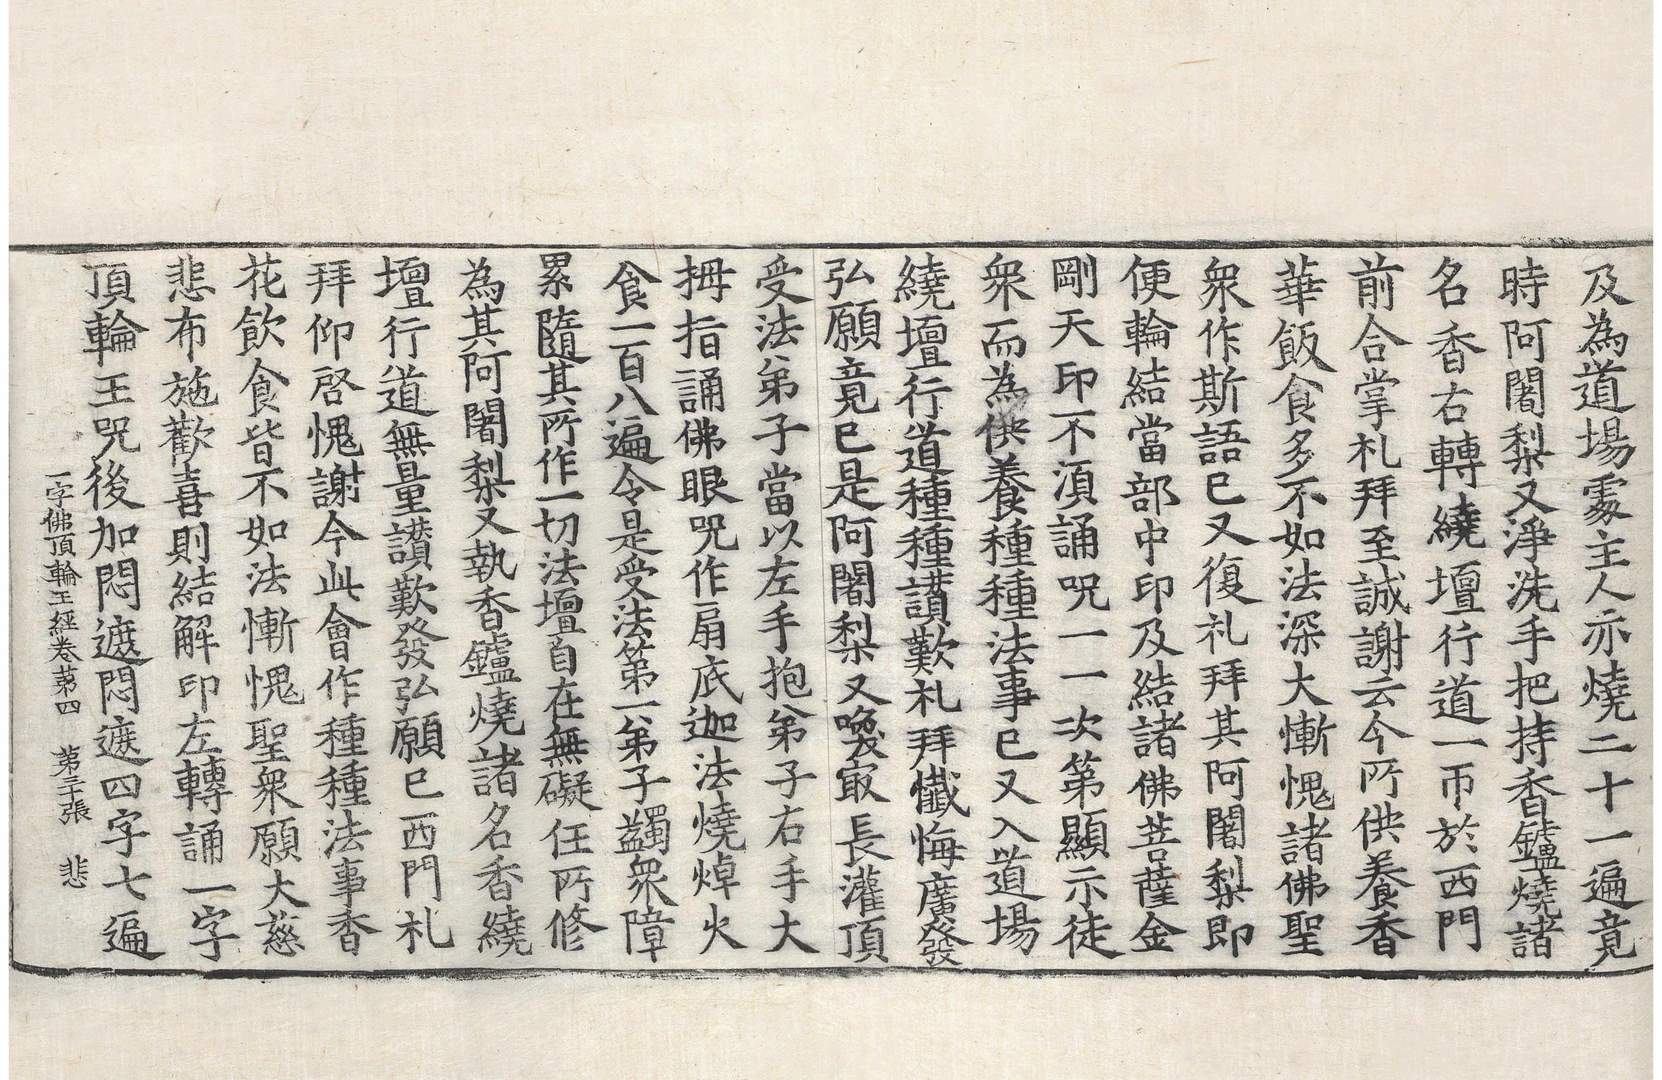 及為道場處主人亦燒二十一遍竟
時阿闍梨又淨洗手把持香鑪燒諸
名香右轉繞壇行道一帀於西門
前合掌礼拜至誠謝云今所供養香
華飯食多不如法深大慚愧諸佛聖
衆作斯語已又復礼拜其阿闍梨即
便輪結當部中印及結諸佛菩薩金
剛天印不湏誦呪一一次第顯示徒
衆而為供養種種法事已又入道場
繞壇行道種種讚歎礼拜懺悔廣發
弘願竟已是阿闍梨又喚冣長灌頂
受法弟子當以左手抱弟子右手大
拇指誦佛眼呪作扇底迦法燒焯火
食一百八遍令是受法第一弟子蠲衆障
累隨其所作一切法壇自在無礙任所修
為其阿闍梨又執香鑪燒諸名香繞
壇行道無量讃歎發弘願已西門礼
拜仰啓愧謝今此會作種種法事香
花飲食皆不如法慚愧聖衆願大慈
悲布施歡喜則結解印左轉誦一字
頂輪王呪後加悶遮悶遮四字七遍
一字佛頂輪王經卷第四　第三十張　悲